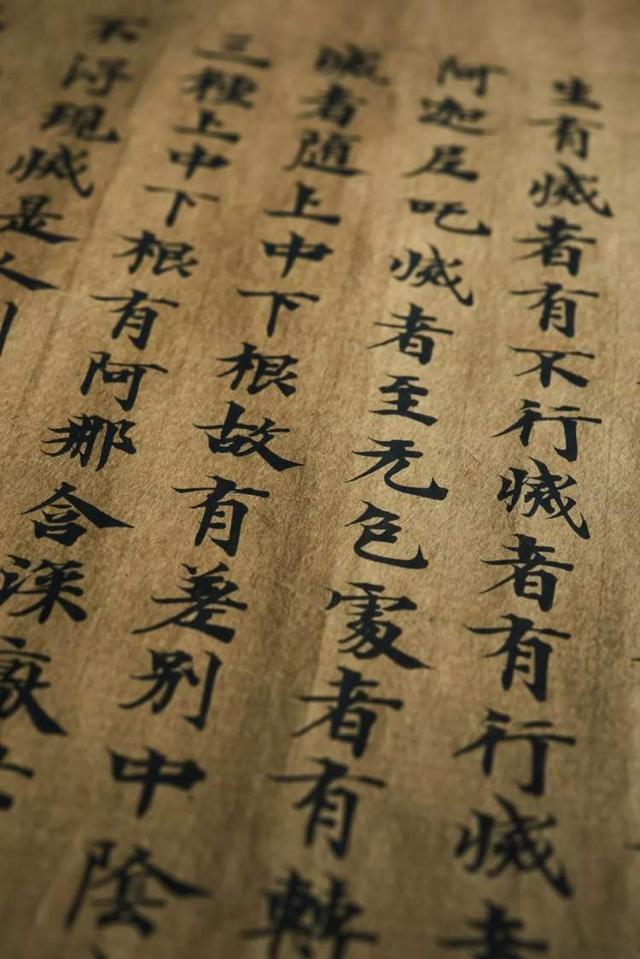 生有滅者有不行滅者有行滅者
阿迦尼吒滅者至无色處者有轉
滅者随上中下根故有差別中陰
三種上中下根有阿那含深厭
不得現滅是人